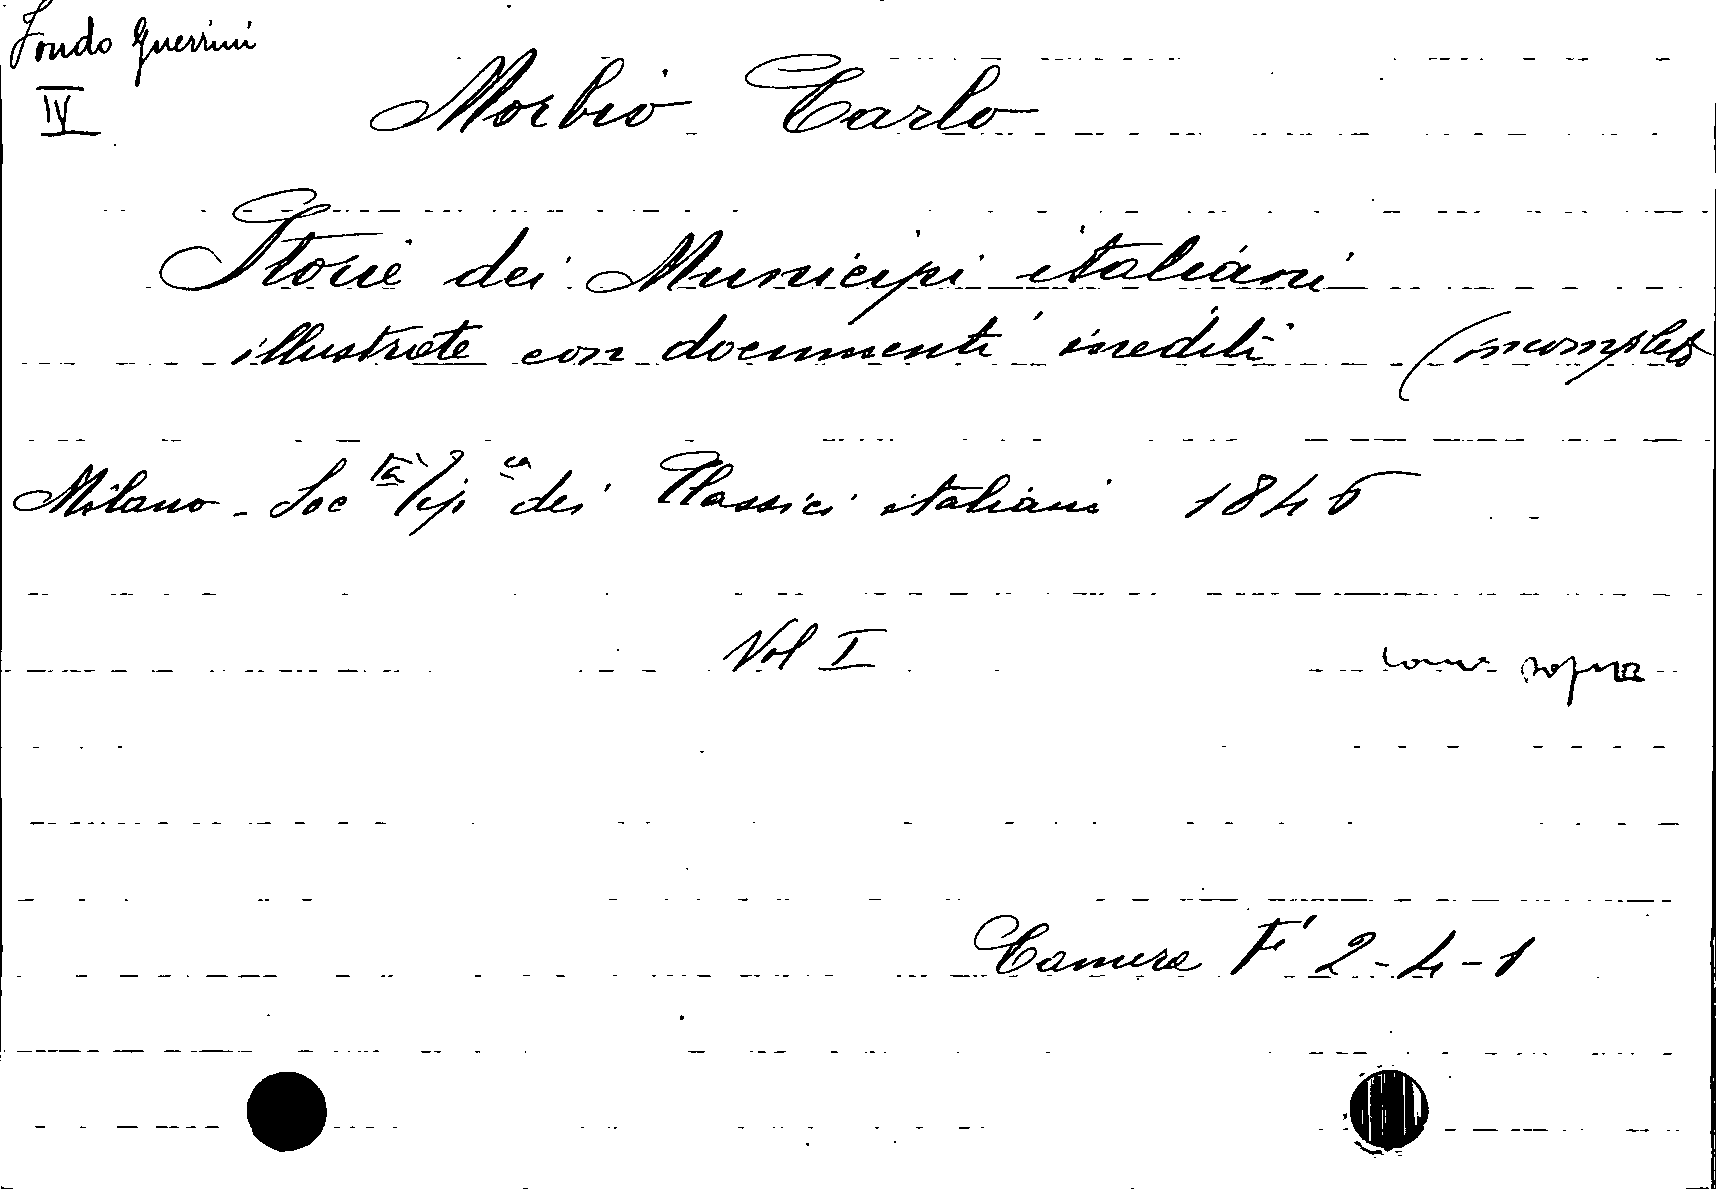 Fondo Guerrini
IV
Morbio Carlo
Storie dei Municipi italiani
illustrate con documenti inediti (incompleto
Milano - Soc tà Tip ca dei Classici italiani 184
Vol I
come sopra
Camera F' 2-4-1